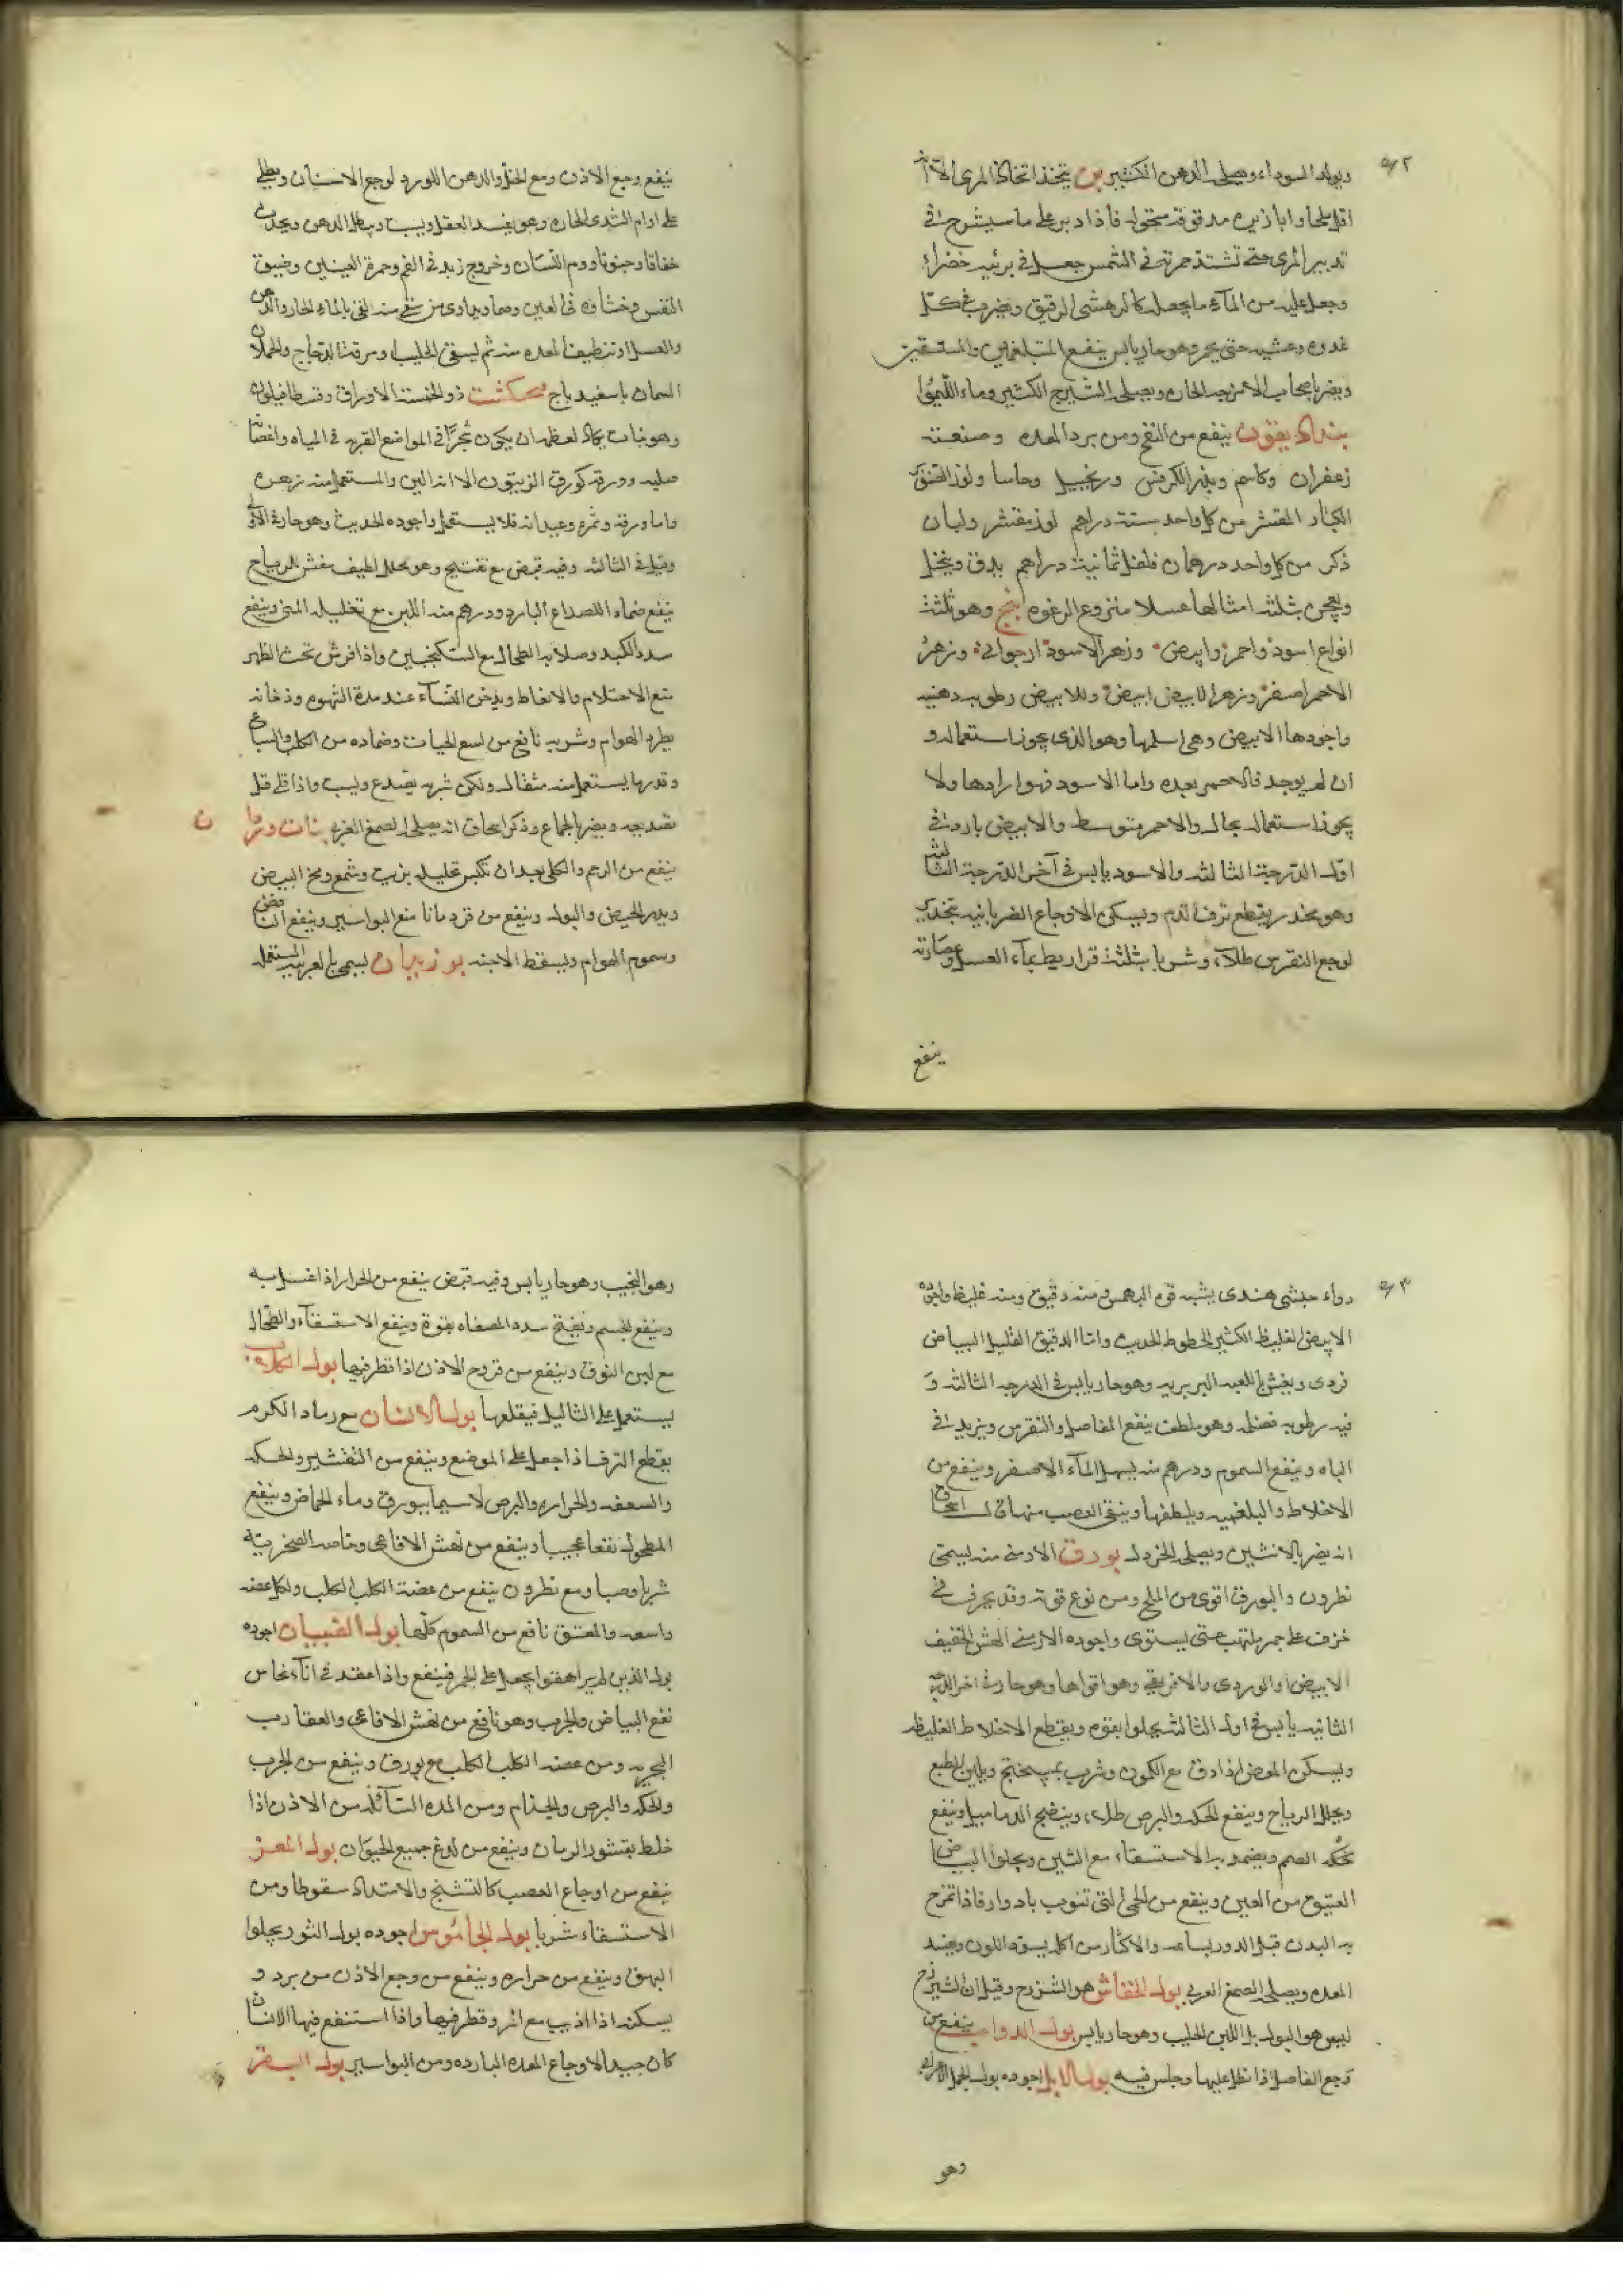 ويولد السوداء ويصلحه الدهن الكثير بن يتخذ اتخاذ المرى الا انه
اقل ملحا وابازيره مدقوقة منخوله فاذا دبر على ما سيشرح في
تدبير المرى حتى تشتد حمرته في الشمس جعل في برنيه خضراء
وجعل عليه من المآء ما يجعله كالرهشى الرقيق ويضرب في كلّ
غدوه وعشيه حتى يحمر وهو حار يابس ينفع المتبلغمين والمستسقين
ويضر باصحاب الامزجه الحاره ويصلحه الشيرج الكثير وماء الليمو
بنداديقون ينفع من النفخ ومن برد المعده وصنعته
زعفران وكاشم وبذر الكرفس وزنجبيل وحاسا ولوز الصنوبر
الكبار المقشر من كل واحد ستة دراهم لوز مقشر ولبان
ذكر من كل واحد درهمان فلفل ثمانية دراهم يدق وينخل
ويعجن بثلثه امثالها عسلا منزوع الرغوه بنج وهو ثلثة
انواع اسود واحمر وابيض وزهر الاسود ارجواني وزهر
الاحمر اصفر وزهر الابيض ابيض وللابيض رطوبه دهنيه
واجودها الابيض وهى اسلمها وهو الذى يجوز استعماله و
ان لم يوجد فالاحمر بعده واما الاسود فهو ارادها ولا
يجوز استعماله بحال والاحمر متوسط والابيض بارد في
اول الدرجة الثالثه والاسود يابس في آخر الدرجة الثالثه
وهو مخدر يقطع نزف الدم ويسكن الاوجاع الضربانيه بتخديره
لوجع النقرس طلآء وشربا بثلثة قراريط بمآء العسل وعصارته
ينفع
ينفع وجع الاذن ومع الخل والدهن الورد لوجع الاسنان ويطلى
على اورام الثدى الحاره وهو يفسد العقل ويسبت ويبطل الذهن ويحدث
خناقا وجنونا وورم اللسان وخروج زبد في الفم وحمرة العينين وضيق
النفس وغشاوه في العين وصما ويداوى من سقى منه القئ بالماء الحار والدهن
والعسل او تنظيف المعده منه ثم يسقى الحليب او مرقة الدجاج والحملان
السمان باسفيدباج فنجنكشت ذو الخمسة الاوراق وفنطافيلون
وهو نبات يكاد لعظمه ان يكون شجرا في المواضع القريبه في المياه واغصانه
صلبه وورقه كورق الزيتون الا انه الين والمستعمل منه زهره
واما ورقه وثمره وعيدانه فلا يستعمل واجوده الحديث وهو حار في الاولى
وقيل في الثالثه وفيه قبض مع تفتيح وهو محلل لطيف مفش للرياح
ينفع ضماده الصداع البارد ودرهم منه اللبن مع تخليله المنى وينفع
سدد الكبد وصلابه الطحال مع السكنجبين واذا فرش تحت الظهر
منع الاحتلام والانعاظ ويدخن النساء عند مدة الشهوه ودخانه
يطرد الهوام وشربه نافع من لسع الحيات وضماده من الكلب والسباع
وقدر ما يستعمل منه مثقال ولكن شربه يصدع ويسبت واذا قلى قل
تصديعه ويضر بالجماع وذكر اسحاق انه يصلحه الصمغ العربى بنات وردان
ينفع من الرحم والكلى بعد ان تكبس تحليله بزيت وشمع ومخ البيض
ويدر الحيض والبول وينفع من قردمانا منع البواسير وينفع النافض
وسموم الهوام ويسقط الاجنه بوزيدان يسمى بالعربيه المستعجله
دواء حبشى هندى يشبه قوه البهمن منه دقيق ومنه غليظ واجوده
الابيض الغليظ الكثير الخطوط الحديث واما الدقيق القليل البياض
فردى ويغش باللعبه البربريه وهو حار يابس في الدرجه الثالثه و
فيه رطوبه فضله وهو ملطف ينفع المفاصل والنقرس ويزيد في
الباه وينفع السموم ودرهم منه يسهل المآء الاصفر وينفع من
الاخلاط والبلغميه ويلطفها وينقى العصب منها قال اسحاق
انه يضر بالانثيين ويصلحه الخردل بورق الارمنى منه يسمى
نطرون والبورق اقوى من الملح ومن نوع قوته وقد يحرق في
خزف على جمر ملتهب حتى يستوى واجوده الارمنى الهش الخفيف
الابيض او الوردى والافريقى وهو اقواها وهو حار في اخر الدرجه
الثانيه يابس في اول الثالثه يجلو بقوه ويقطع الاخلاط الغليظه
ويسكن المغص اذا دق مع الكمون وشرب بميبختج ويلين الطبع
ويحلل الرياح وينفع الحكه والبرص طلاء وينضج الدماميل وينفع
حكة الصم ويضمد به الاستسقاء مع التين ويجلوا البياض
العتيق من العين وينفع من الحمى التى تنوب بادوار فاذا تمرخ
به البدن قبل الدور بساعه والاكثار من اكله يسود اللون ويفسد
المعده ويصلحه الصمغ العربى بول الخفاش هو الشيرزح وقيل ان الشيرزح
ليس هو البول بل اللبن الحليب وهو حار يابس بول الدواب ينفع من
وجع المفاصل اذا نطل عليها وجلس فيه بول الابل اجوده بول الجمل الاعرابى
وهو
وهو النجيب وهو حار يابس وفيه قبض ينفع من الحزاز اذا غسل به
وينفع الخشم ويفتح سدد المصفاه بقوة وينفع الاستسقآء والطحال
مع لبن النوق وينفع من قروح الاذن اذا قطر فيها بول الكلب
يستعمل على الثاليل فيقلعها بول الانسان مع رماد الكرم
يقطع النزف اذا جعل على الموضع وينفع من التقشير والحكه
والسعفه والحزازه والبرص لا سيما ببورق وماء الحماض وينفع
المطحول نفعا عجيبا وينفع من نهش الافاعى وخاصه الصخريه
شربا وصبا ومع نطرون ينفع من عضة الكلب الكلب ولكل عضه
ولسعه والمعتق نافع من السموم كلها بول الصبيان اجوده
بول الذين لم يراهقوا يجعل على الحمر فينفع واذا عقد في انآء نحاس
نفع البياض والجرب وهو نافع من نهش الافاعى والعقارب
البحريه ومن عضه الكلب الكلب مع بورق وينفع من الجرب
والحكه والبرص والجذام ومن المده السآئله من الاذن اذا
خلط بقشور الرمان وينفع من لدغ جميع الحيوان بول المعز
ينفع من اوجاع العصب كالتشنج والامتداد سقوطا ومن
الاستسقاء شربا بول الجاموس اجوده بول الثور يجلوا
البهق وينفع من حزازه وينفع من وجع الاذن من برد و
يسكنه اذا اذيب مع المر وقطر فيها واذا استنقع فيها الانسان
كان جيدا لاوجاع المعده البارده ومن البواسير بول البقر